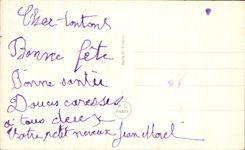 Cher tontons
Bonne fête
Bonne santée
Douces caresses
à tous deux
Votre petit neveux Jean Morel
PARIS